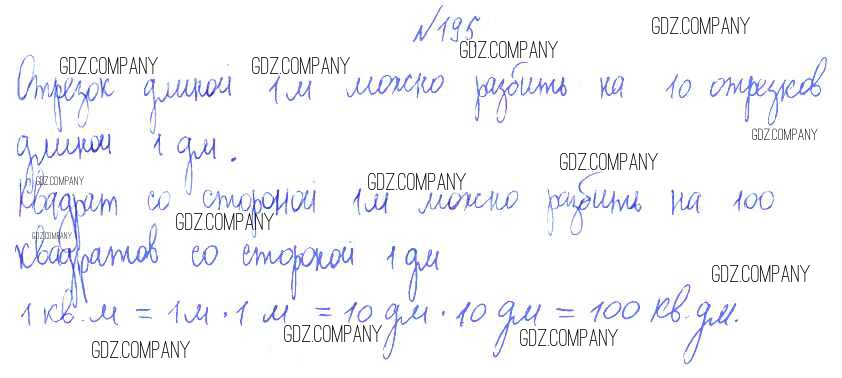 №195
Отрезок длиной 1 м можно разбить на 10 отрезков
длиной 1 дм.
Квадрат со стороной 1м можно разбить на 100
квадратов со стороной 1 дм
1 кв. м = 1 м · 1 м = 10 дм · 10 дм = 100 кв. дм.
GDZ.COMPANY
GDZ.COMPANY
GDZ.COMPANY
GDZ.COMPANY
GDZ.COMPANY
GDZ.COMPANY
GDZ.COMPANY
GDZ.COMPANY
GDZ.COMPANY
GDZ.COMPANY
GDZ.COMPANY
GDZ.COMPANY
GDZ.COMPANY
GDZ.COMPANY